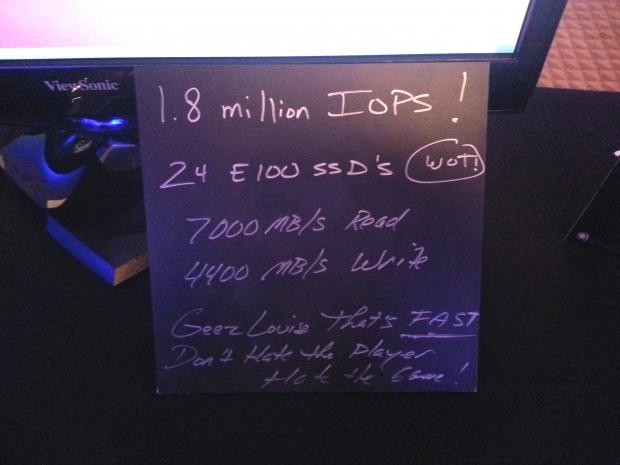 ViewSonic
1.8 million IOPS!
24 E100 SSD's WOT!
7000 MB/s Read
4400 MB/s Write
Geez Louise That's FAST
Don't Hate the Player
Hate the Game!